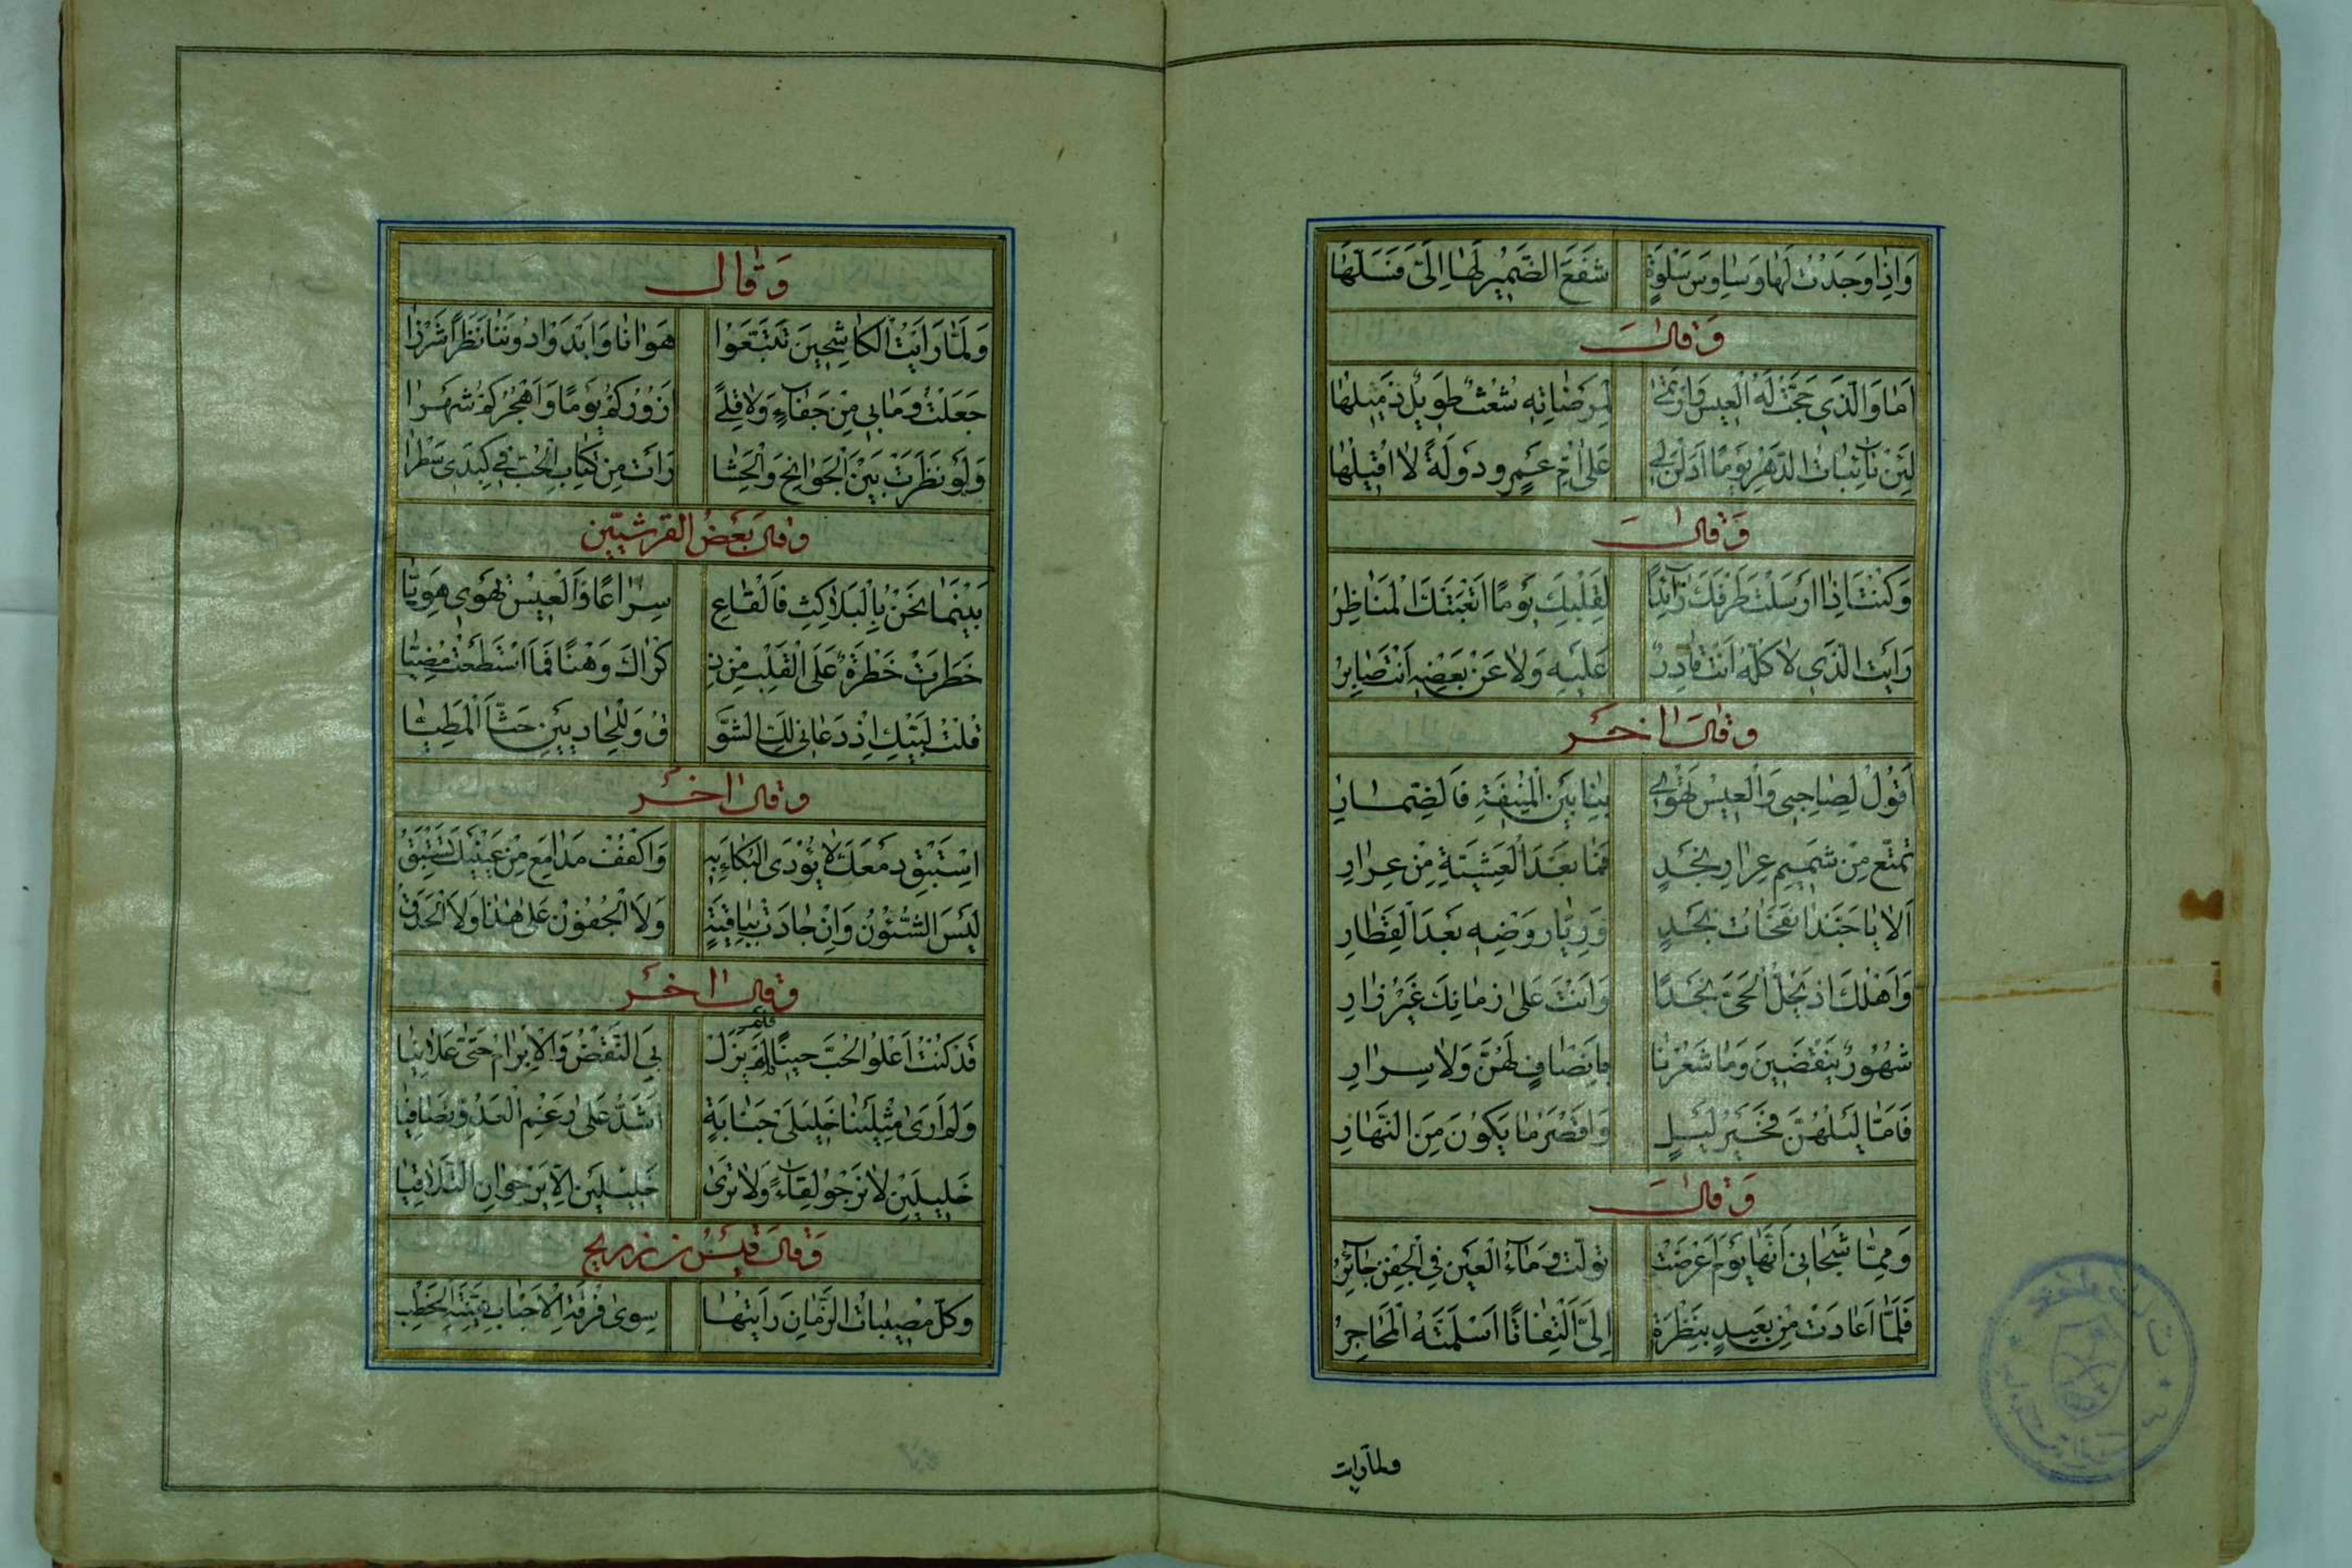 وَاِذَا وَجَدْتُ لَهَا وَسَاوِسَ سَلْوَةٍ شَفَعَ الضَّمِيْرُ لَهَا اِلَىَّ فَسَلَّهَا
وَقَالَ
اَمَا وَالَّذِي حَجَّتْ لَهُ الْعِيْسُ وَارْتَمٰى لِمَرْضَاتِهٖ شُعْثٌ طَوِيْلٌ ذَمِيْلُهَا
لَئِنْ نَآئِبَاتُ الدَّهْرِ يَوْمًا اَدَلْنَ لِى عَلٰى اُمِّ عَمْرٍو دَوْلَةً لَا اُقِيْلُهَا
وَقَالَ
وَكُنْتَ اِذَا اَرْسَلْتَ طَرْفَكَ رَآئِدًا لِقَلْبِكَ يَوْمًا اَتْعَبَتْكَ الْمَنَاظِرُ
رَاَيْتَ الَّذِي لَا كُلُّهُ اَنْتَ قَادِرٌ عَلَيْهِ وَلَا عَنْ بَعْضِهٖ اَنْتَ صَابِرُ
وَقَالَ اٰخَرُ
اَقُوْلُ لِصَاحِبِى وَالْعِيْسُ تَهْوِى بِنَا بَيْنَ الْمُنِيْفَةِ فَالضِّمَارِ
تَمَتَّعْ مِنْ شَمِيْمِ عَرَارِ نَجْدٍ فَمَا بَعْدَ الْعَشِيَّةِ مِنْ عَرَارِ
اَلَا يَا حَبَّذَا نَفَحَاتُ نَجْدٍ وَرِيَّا رَوْضِهٖ بَعْدَ الْقِطَارِ
وَاَهْلُكَ اِذْ يَحُلُّ الْحَىُّ نَجْدًا وَاَنْتَ عَلٰى زَمَانِكَ غَيْرُ زَارِ
شُهُوْرٌ يَنْقَضِيْنَ وَمَا شَعُرْنَا بِاَنْصَافٍ لَهُنَّ وَلَا سِرَارِ
فَاَمَّا لَيْلُهُنَّ فَخَيْرُ لَيْلٍ وَاَقْصَرُ مَا يَكُوْنُ مِنَ النَّهَارِ
وَقَالَ
وَمِمَّا شَجَانِى اَنَّهَا يَوْمَ اَعْرَضَتْ تَوَلَّتْ وَمَاءُ الْعَيْنِ فِى الْجَفْنِ حَآئِرُ
فَلَمَّا اَعَادَتْ مِنْ بَعِيْدٍ بِنَظْرَةٍ اِلَىَّ الْتِفَاتًا اَسْلَمَتْهُ الْمَحَاجِرُ
ولمّا رايت
وَقَالَ
وَلَمَّا رَاَيْتُ الْكَاشِحِيْنَ تَتَبَّعُوْا هَوَانَا وَاَبْدَوْا دُوْنَنَا نَظَرًا شَزْرًا
جَعَلْتُ وَمَا بِى مِنْ جَفَاءٍ وَلَا قِلًى اَزُوْرُكُمْ يَوْمًا وَاَهْجُرُكُمْ شَهْرًا
وَلَوْ نَظَرَتْ بَيْنَ الْجَوَانِحِ وَالْحَشَا رَاَتْ مِنْ كِتَابِ الْحُبِّ فِى كَبِدِى سَطْرًا
وَقَالَ بَعْضُ الْقُرَشِيِّيْنَ
بَيْنَمَا نَحْنُ بِالْبَلَاكِثِ فَالْقَاعِ سِرَاعًا وَالْعِيْسُ تَهْوِى هَوِيًّا
خَطَرَتْ خَطْرَةٌ عَلَى الْقَلْبِ مِنْ ذِ كْرَاكَ وَهْنًا فَمَا اسْتَطَعْتُ مُضِيًّا
قُلْتُ لَبَّيْكِ اِذْ دَعَانِى لَكِ الشَّوْ قُ وَلِلْحَادِيَيْنِ حُثَّا الْمَطِيَّا
وَقَالَ اٰخَرُ
اِسْتَبْقِ دَمْعَكَ لَا يُؤْدَى الْبُكَاءُ بِهٖ وَاكْفُفْ مَدَامِعَ مِنْ عَيْنَيْكَ تَسْتَبِقُ
لَيْسَ الشُّئُوْنُ وَاِنْ جَادَتْ بِبَاقِيَةٍ وَلَا الْجُفُوْنُ عَلٰى هٰذَا وَلَا الْحَدَقُ
وَقَالَ اٰخَرُ
قَدْ كُنْتُ اَعْلُوا الْحُبَّ حِيْنًا فَلَمْ يَزَلْ بِىَ النَّقْضُ وَالْاِبْرَامُ حَتّٰى عَلَانِيَا
وَلَمْ اَرَ مِثْلَيْنَا خَلِيْلَىْ جَنَابَةٍ اَشَدَّ عَلٰى رَغْمِ الْعَدُوِّ تَصَافِيَا
خَلِيْلَيْنِ لَا نَرْجُو لِقَاءً وَلَا تَرٰى خَلِيْلَيْنِ اِلَّا يَرْجُوَانِ التَّلَاقِيَا
وَقَالَ قَيْسُ بن ذريح
وَكُلُّ مُصِيْبَاتِ الزَّمَانِ رَاَيْتُهَا سِوٰى فُرْقَةِ الْاَحْبَابِ هَيِّنَةَ الْخَطْبِ